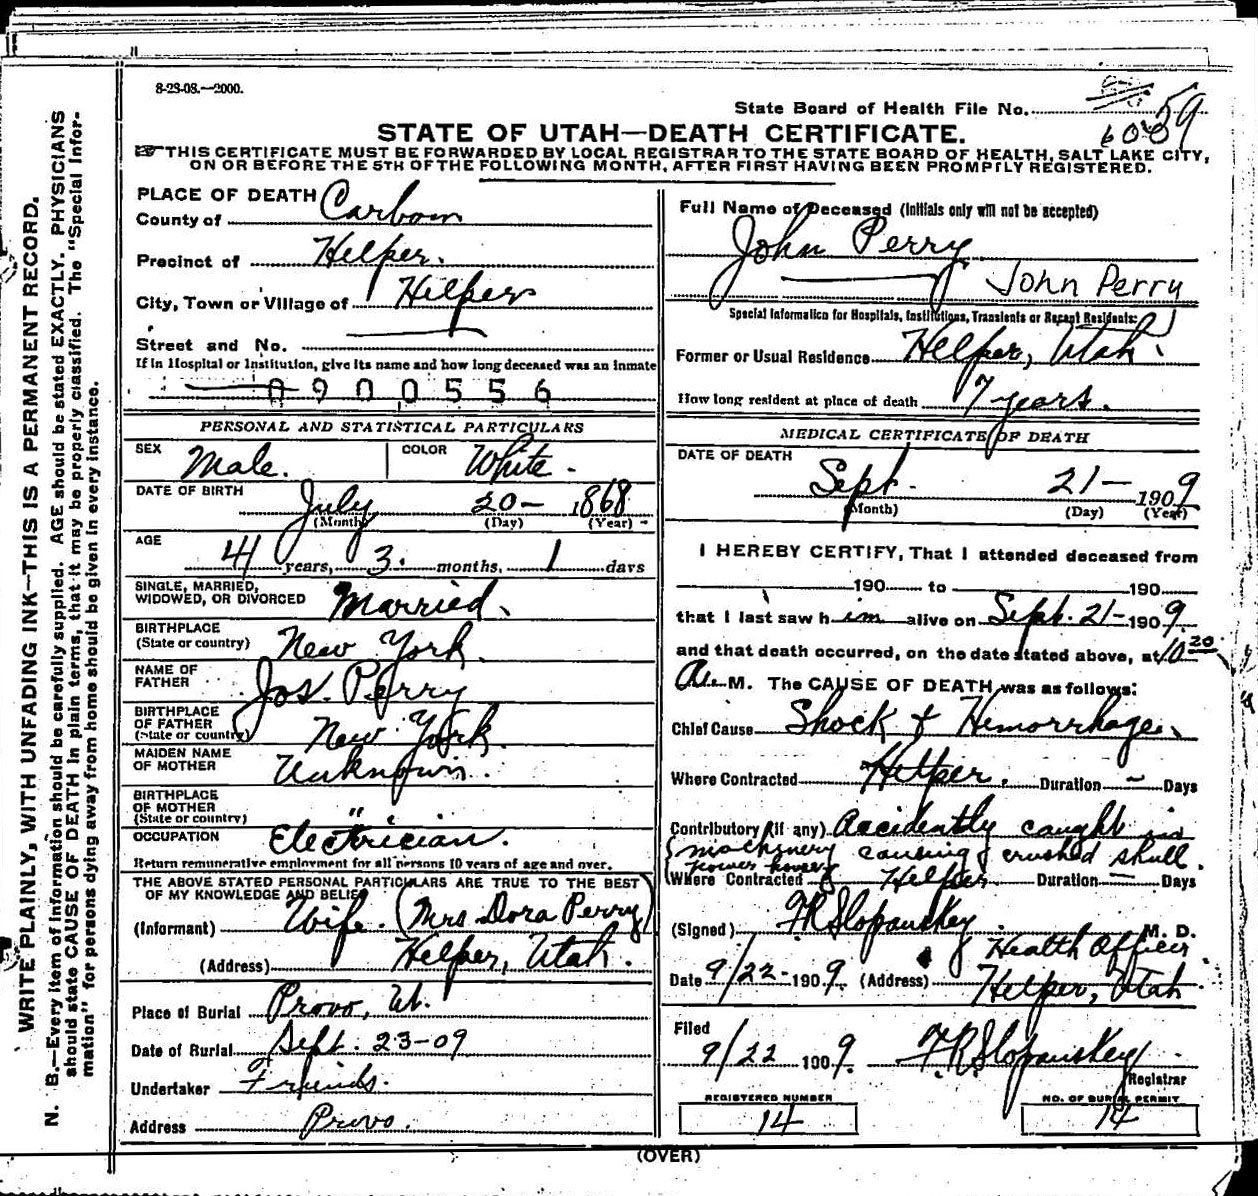 8-23-08.—2000.
State Board of Health File No. 59
STATE OF UTAH—DEATH CERTIFICATE.
THIS CERTIFICATE MUST BE FORWARDED BY LOCAL REGISTRAR TO THE STATE BOARD OF HEALTH, SALT LAKE CITY,
ON OR BEFORE THE 5TH OF THE FOLLOWING MONTH, AFTER FIRST HAVING BEEN PROMPTLY REGISTERED.
WRITE PLAINLY, WITH UNFADING INK—THIS IS A PERMANENT RECORD.
N. B.—Every item of information should be carefully supplied. AGE should be stated EXACTLY. PHYSICIANS
should state CAUSE OF DEATH in plain terms, that it may be properly classified. The "Special Infor-
mation" for persons dying away from home should be given in every instance.
PLACE OF DEATH
County of Carbon
Precinct of Helper.
City, Town or Village of Helper
Street and No.
If in Hospital or Institution, give its name and how long deceased was an inmate
0900556
PERSONAL AND STATISTICAL PARTICULARS
SEX Male. COLOR White.
DATE OF BIRTH July 20- 1868
(Month) (Day) (Year)
AGE
41 years, 3. months, 1 days
SINGLE, MARRIED,
WIDOWED, OR DIVORCED Married.
BIRTHPLACE
(State or country) New York
NAME OF
FATHER Jos. Perry
BIRTHPLACE
OF FATHER
(State or country) New York.
MAIDEN NAME
OF MOTHER Unknown.
BIRTHPLACE
OF MOTHER
(State or country) "
OCCUPATION Electrician.
Return remunerative employment for all persons 10 years of age and over.
THE ABOVE STATED PERSONAL PARTICULARS ARE TRUE TO THE BEST
OF MY KNOWLEDGE AND BELIEF
(Informant) Wife. (Mrs Dora Perry)
(Address) Helper, Utah.
Place of Burial Provo, Ut.
Date of Burial Sept. 23-09
Undertaker Friends.
Address Provo.
Full Name of Deceased (Initials only will not be accepted)
John Perry
John Perry
Special Information for Hospitals, Institutions, Transients or Recent Residents:
Former or Usual Residence Helper, Utah.
How long resident at place of death 7 years.
MEDICAL CERTIFICATE OF DEATH
DATE OF DEATH
Sept. 21- 1909
(Month) (Day) (Year)
I HEREBY CERTIFY, That I attended deceased from
190 to 190
that I last saw him alive on Sept. 21- 1909.
and that death occurred, on the date stated above, at 10 20
A. M. The CAUSE OF DEATH was as follows:
Chief Cause Shock & Hemorrhage.
Where Contracted Helper. Duration — Days
Contributory (if any) Accidently caught in
machinery causing crushed skull.
power house
Where Contracted Helper Duration — Days
(Signed) F R Slopanskey M. D.
Health Officer
Date 9/22-1909. (Address) Helper, Utah
Filed
9/22 1909. F. R. Slopanskey
Registrar
REGISTERED NUMBER
14
NO. OF BURIAL PERMIT
14
(OVER)